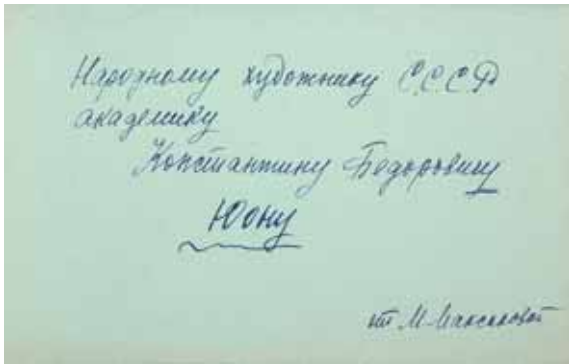 Народному художнику СССР
академику
Константину Федоровичу
Юону
от М. Максаковой